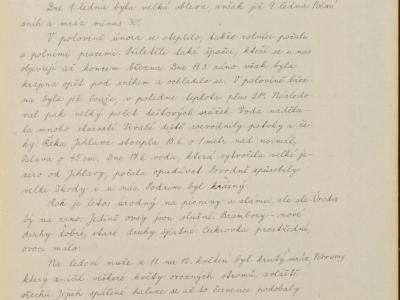 Dne 1. ledna byla velká obleva avšak již 9. ledna
sníh a mráz minus 30°.
V polovině února se oteplilo, takže rolníci počali
s polními pracemi. Přiletěli také špačci, kteří se u nás
objevují až koncem března. Dne 11.3. ráno však byla
krajina opět pod sněhem a ochladilo se. V polovině břez-
na byla již bouře, v poledne teplota plus 21°. Následo-
val pak velký počet dešťových srážek. Voda naděla-
la mnoho starostí. Trvalé deště rozvodnily potoky a ře-
ky. Řeka Jihlava stoupla 13.6. o 1 metr nad normál,
Oslava o 45 cm. Dne 17.6. voda, která vytvořila velké je-
zero od Jihlavy, počala opadávat. Povodně způsobily
velké škody i u nás. Podzim byl krásný.
Rok je letos úrodný na pícniny a slámu, ale ne úroda
by na zrno. Jedině ovsy jsou slušné. Brambory - nové
druhy dobré, staré druhy špatné. Cukrovka prostřední,
ovoce málo.
Na ledové muže z 11. na 12. květen byl krutý mráz,
který zničil veškeré květy ovocných stromů, zvláště
ořechů. Jejich spálené haluze se až do července podobaly